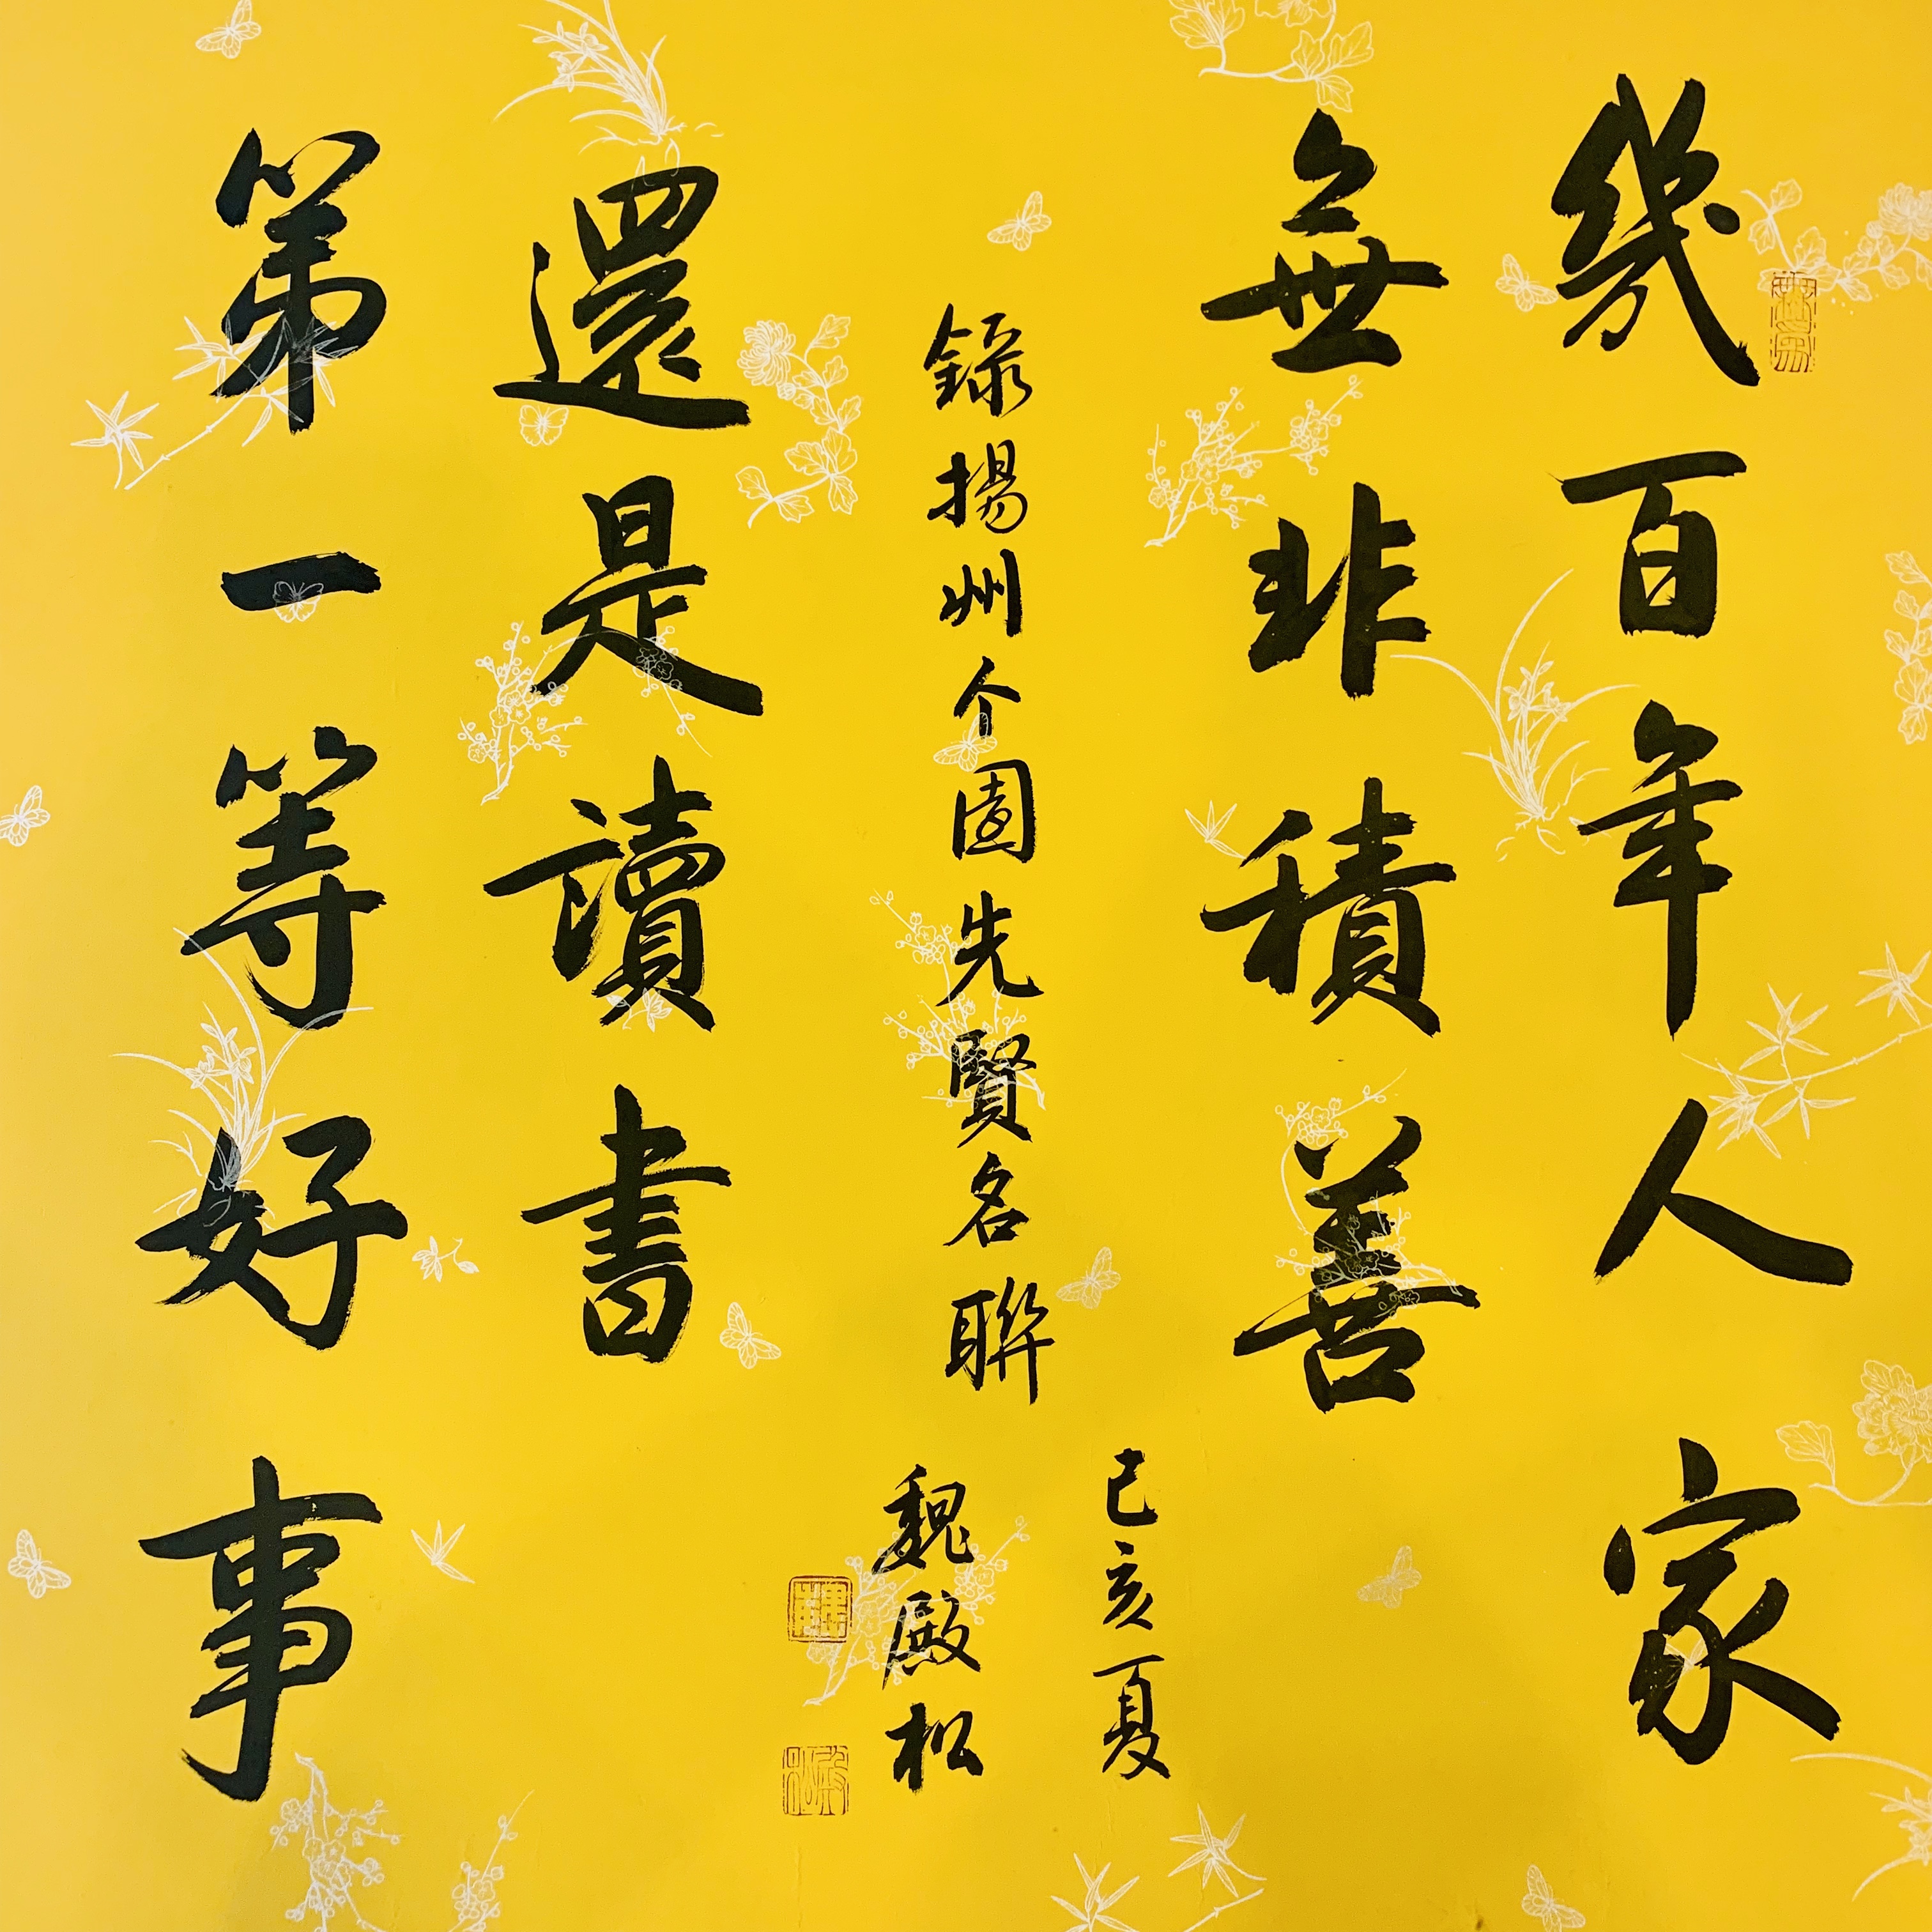 幾百年人家
無非積善
第一等好事
還是讀書
己亥夏
錄揚州个園先賢名聯
魏殿松